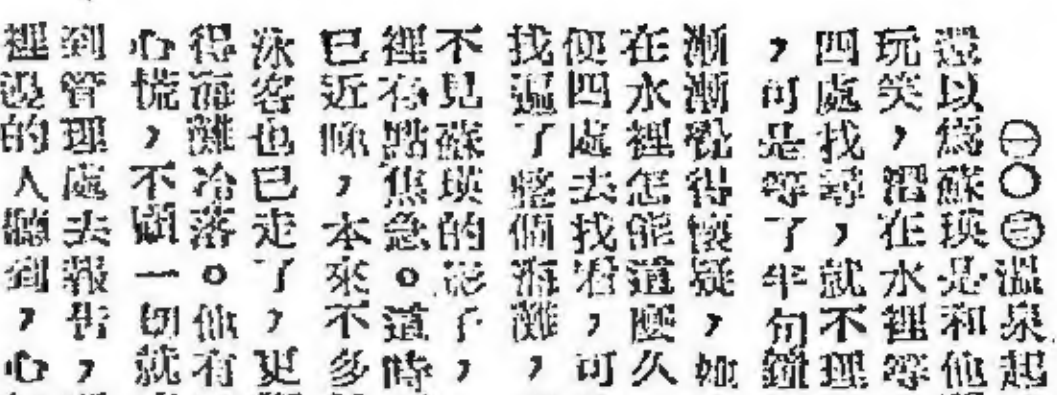 ㊀〇㊂溫泉起
還以為蘇瑛是和他
玩笑，潛在水裡等
四處找尋，就不理
，可是等了半句鐘
漸漸覺得懷疑，如
在水裡怎能這麼久
便四處去找看，可
找遍了整個海灘，
不見蘇瑛的影子，
裡有點焦急。這時
已近晚，本來不多
泳客也已走了，更
得海灘冷落。他有
心慌，不顧一切就
到管理處去報告，
裡邊的人聽到，心